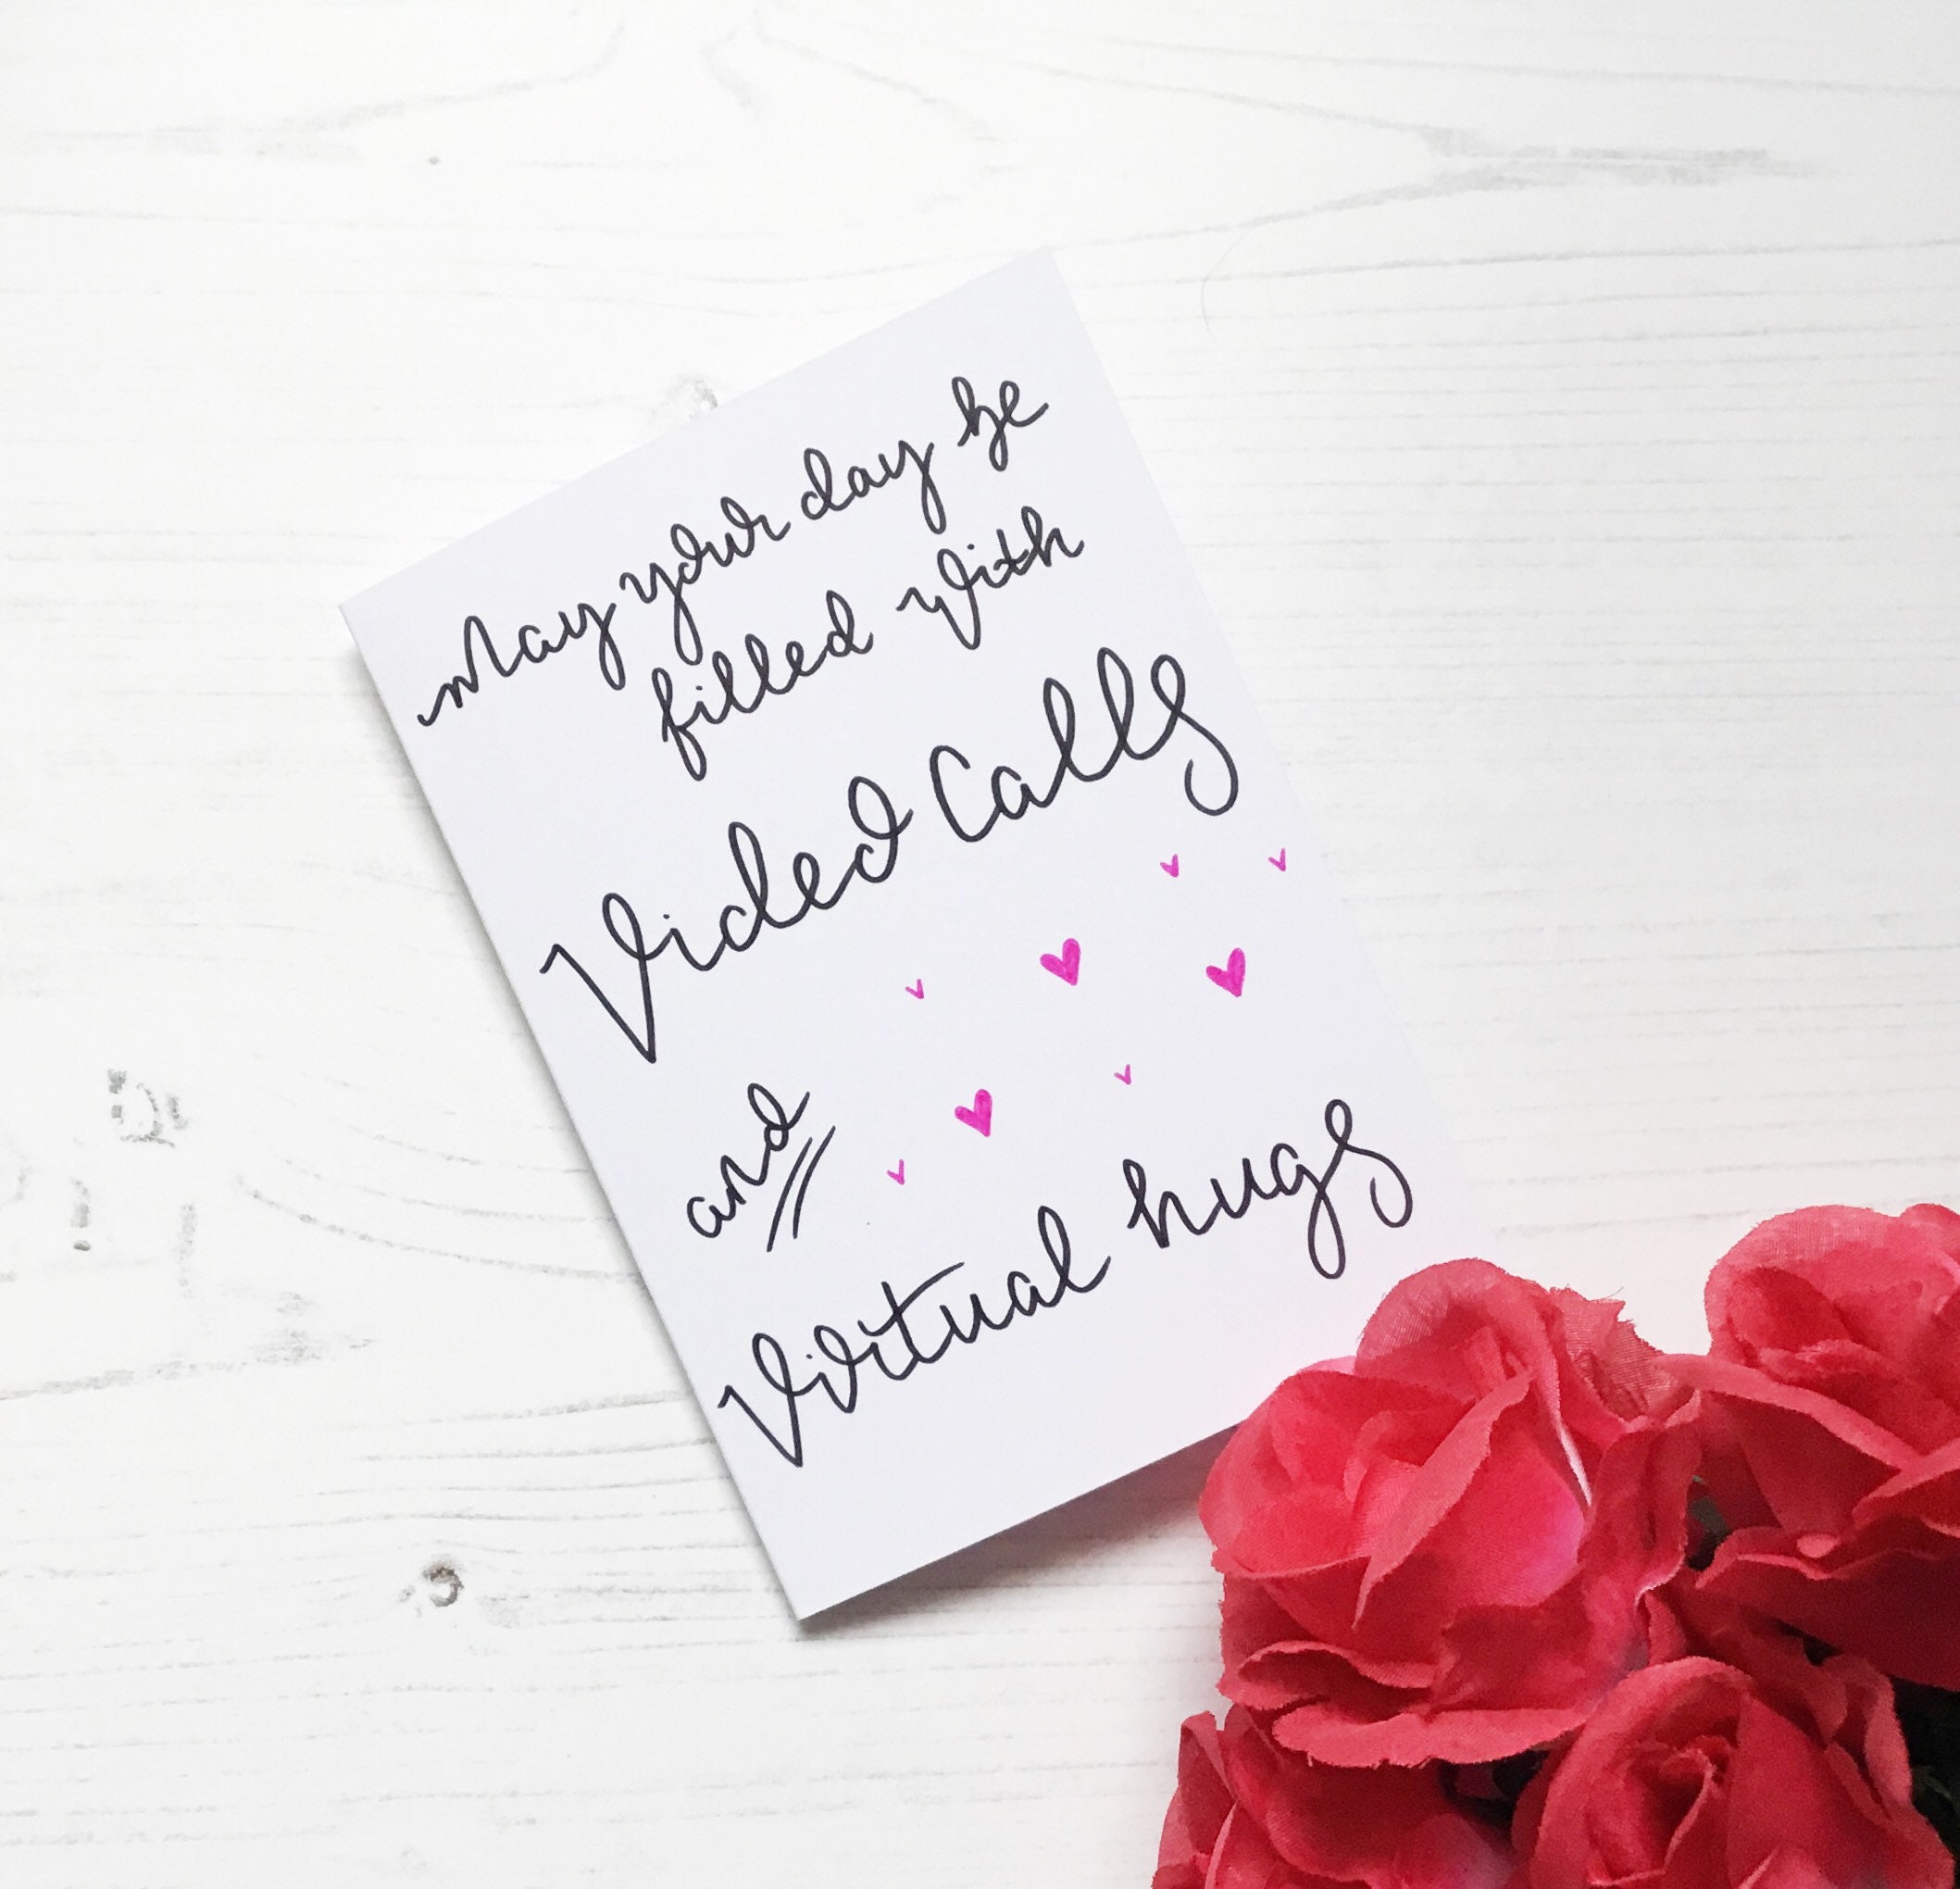 May your day be
filled with
Video Calls
and
Virtual hugs